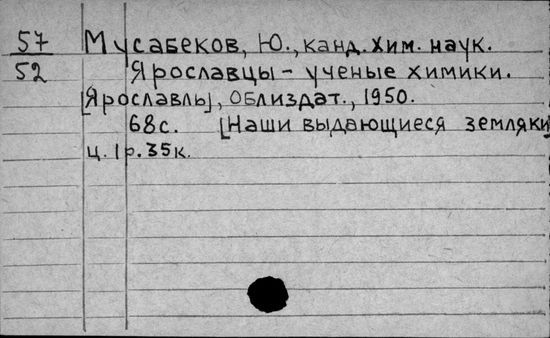 57 Мусабеков, Ю., канд. хим. наук.
52 Ярославцы - ученые химики.
[Ярославль], Облиздат., 1950.
68с. [Наши выдающиеся земляки
ц. 1р. 35к.